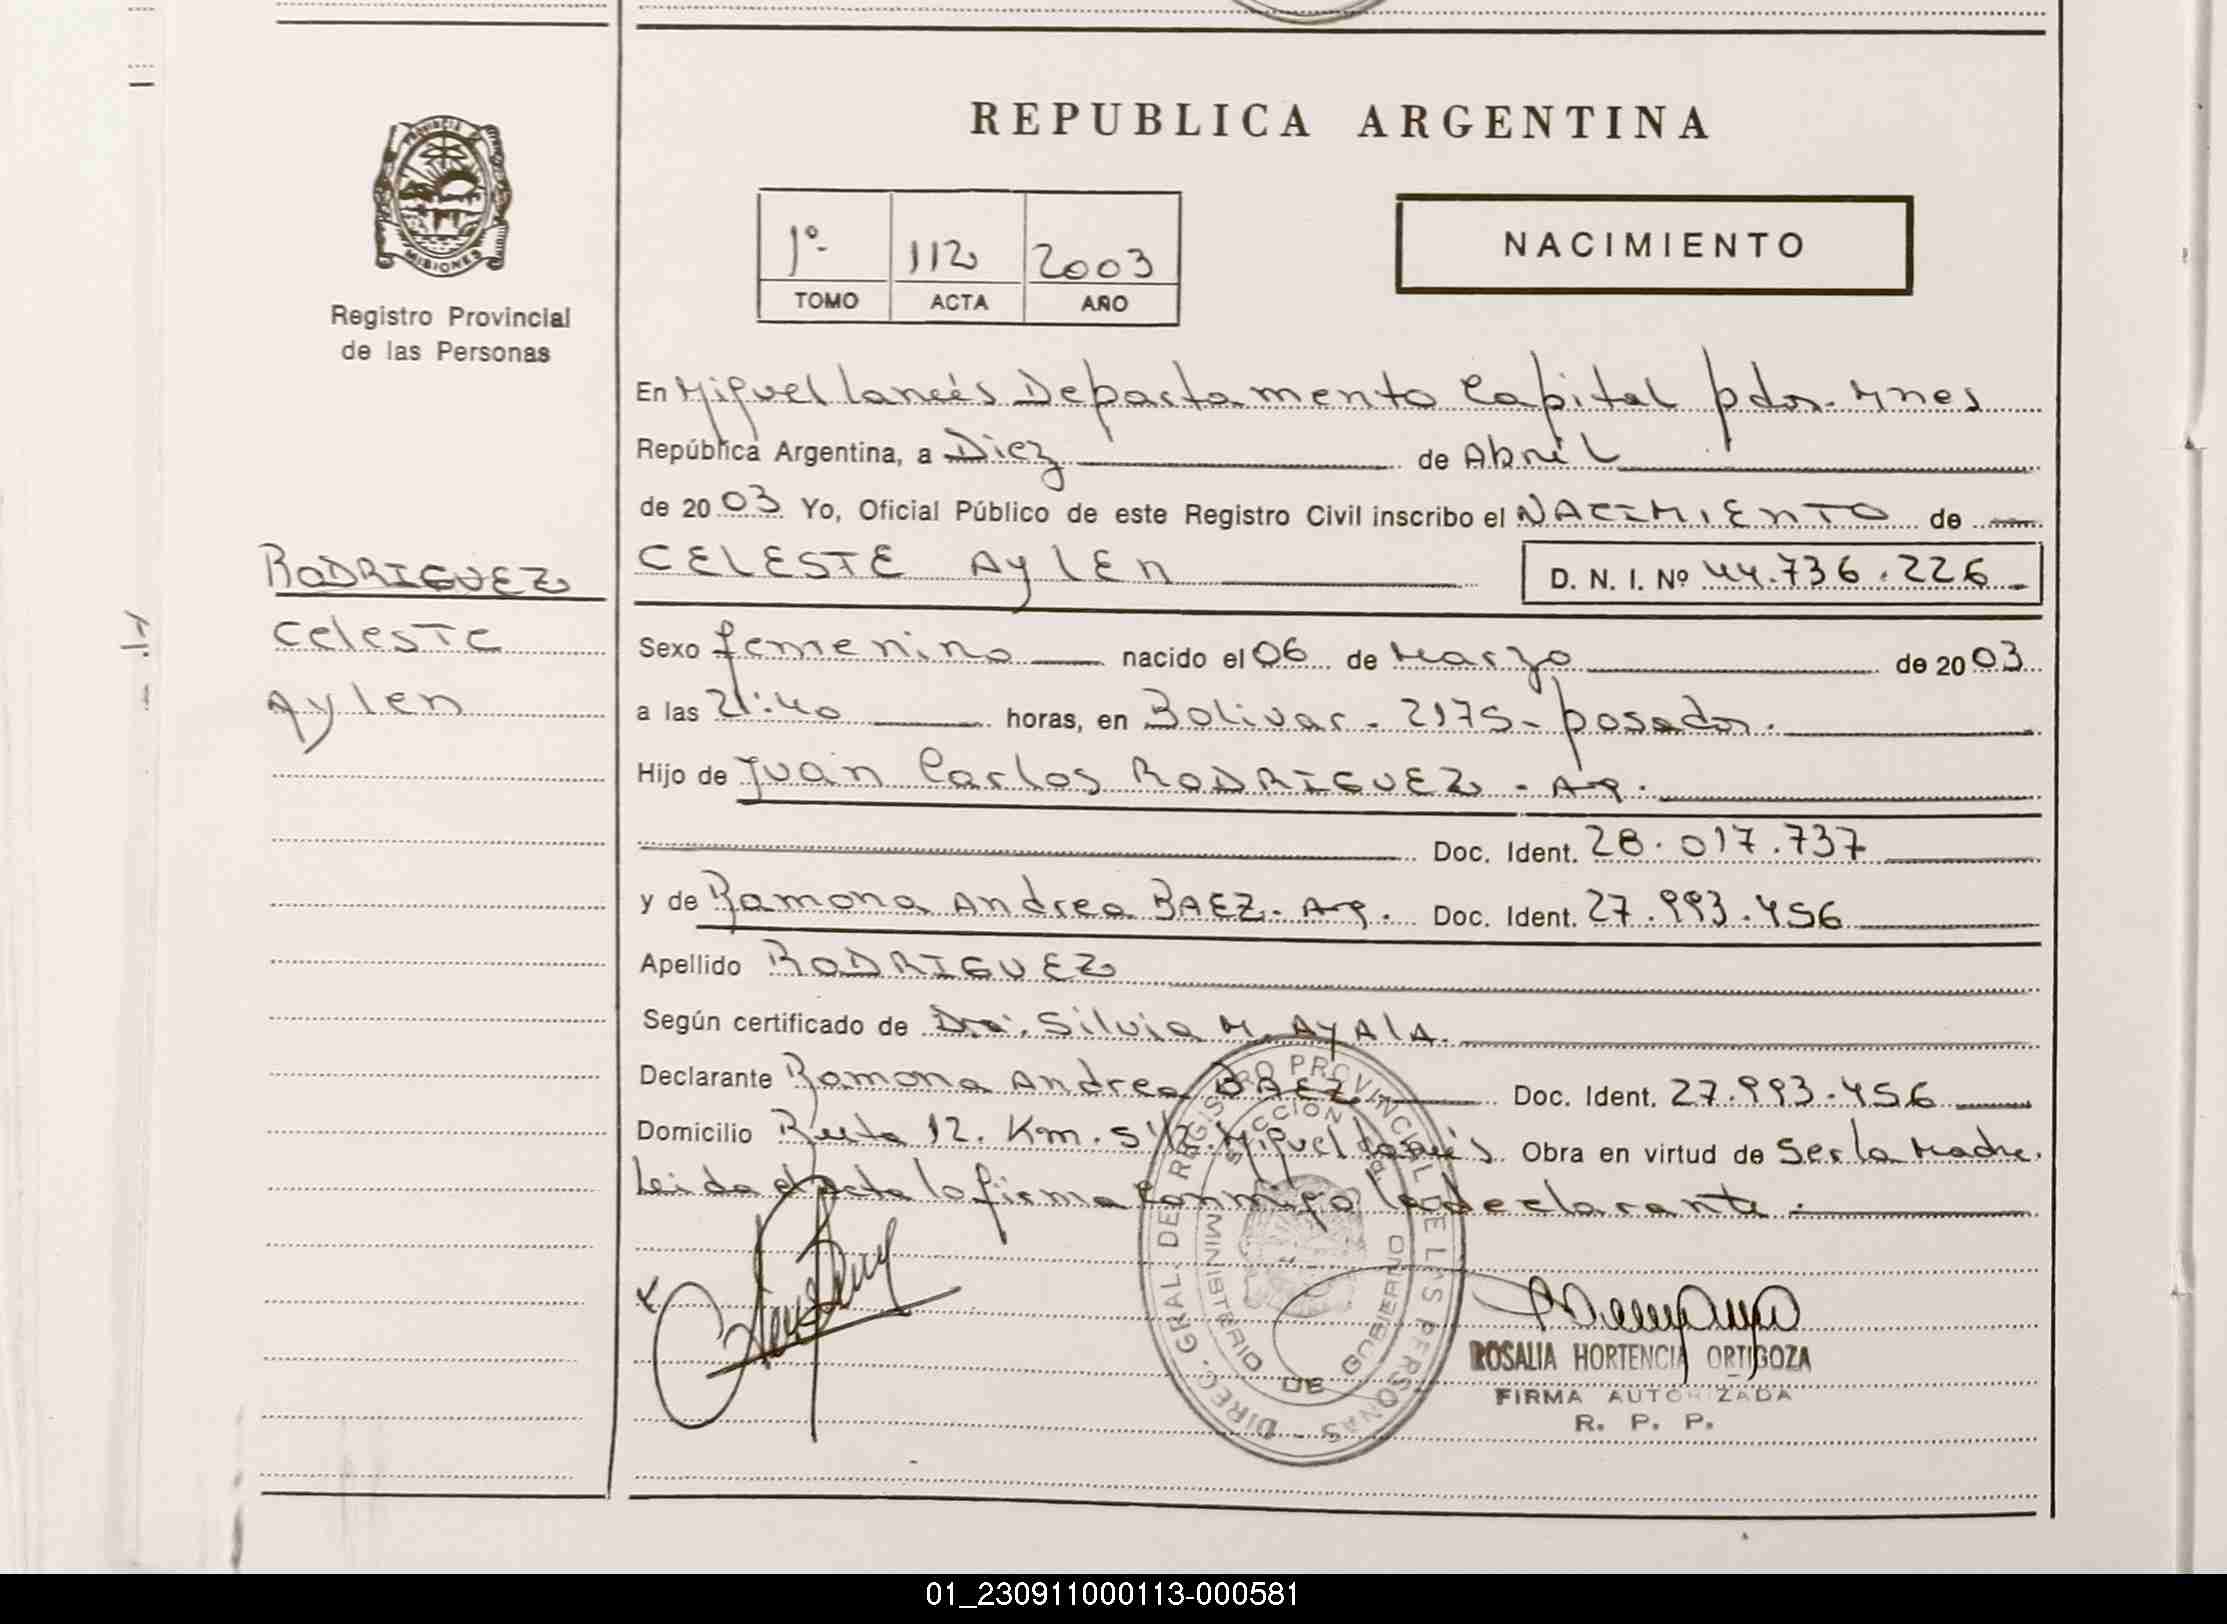 REPUBLICA ARGENTINA
PROVINCIA DE MISIONES
Registro Provincial
de las Personas
1º 112 2003
TOMO ACTA AÑO
NACIMIENTO
En Miguel Lanús Departamento Capital pdas. Mnes
República Argentina, a Diez de Abril
de 2003 Yo, Oficial Público de este Registro Civil inscribo el NACIMIENTO de
RODRIGUEZ
Celeste
Aylen
CELESTE AylEn D. N. I. Nº 44.736.226
Sexo femenino nacido el 06 de Marzo de 2003
a las 21:40 horas, en Bolivar - 2175 - posadas.
Hijo de Juan Carlos RODRIGUEZ - Arg.
Doc. Ident. 28.017.737
y de Ramona Andrea BAEZ - Arg. Doc. Ident. 27.993.456
Apellido RODRIGUEZ
Según certificado de Dra. Silvia M. AyAlA.
Declarante Ramona Andrea BAEZ. Doc. Ident. 27.993.456
Domicilio Ruta 12. Km. 5 1/2. Miguel Lanús. Obra en virtud de Ser la Madre.
Leida el acta lo firma conmigo la declarante.
DIREC. GRAL. DE REGISTRO PROVINCIAL DE LAS PERSONAS
MINISTERIO DE GOBIERNO
ROSALIA HORTENCIA ORTIGOZA
FIRMA AUTORIZADA
R. P. P.
01_230911000113-000581